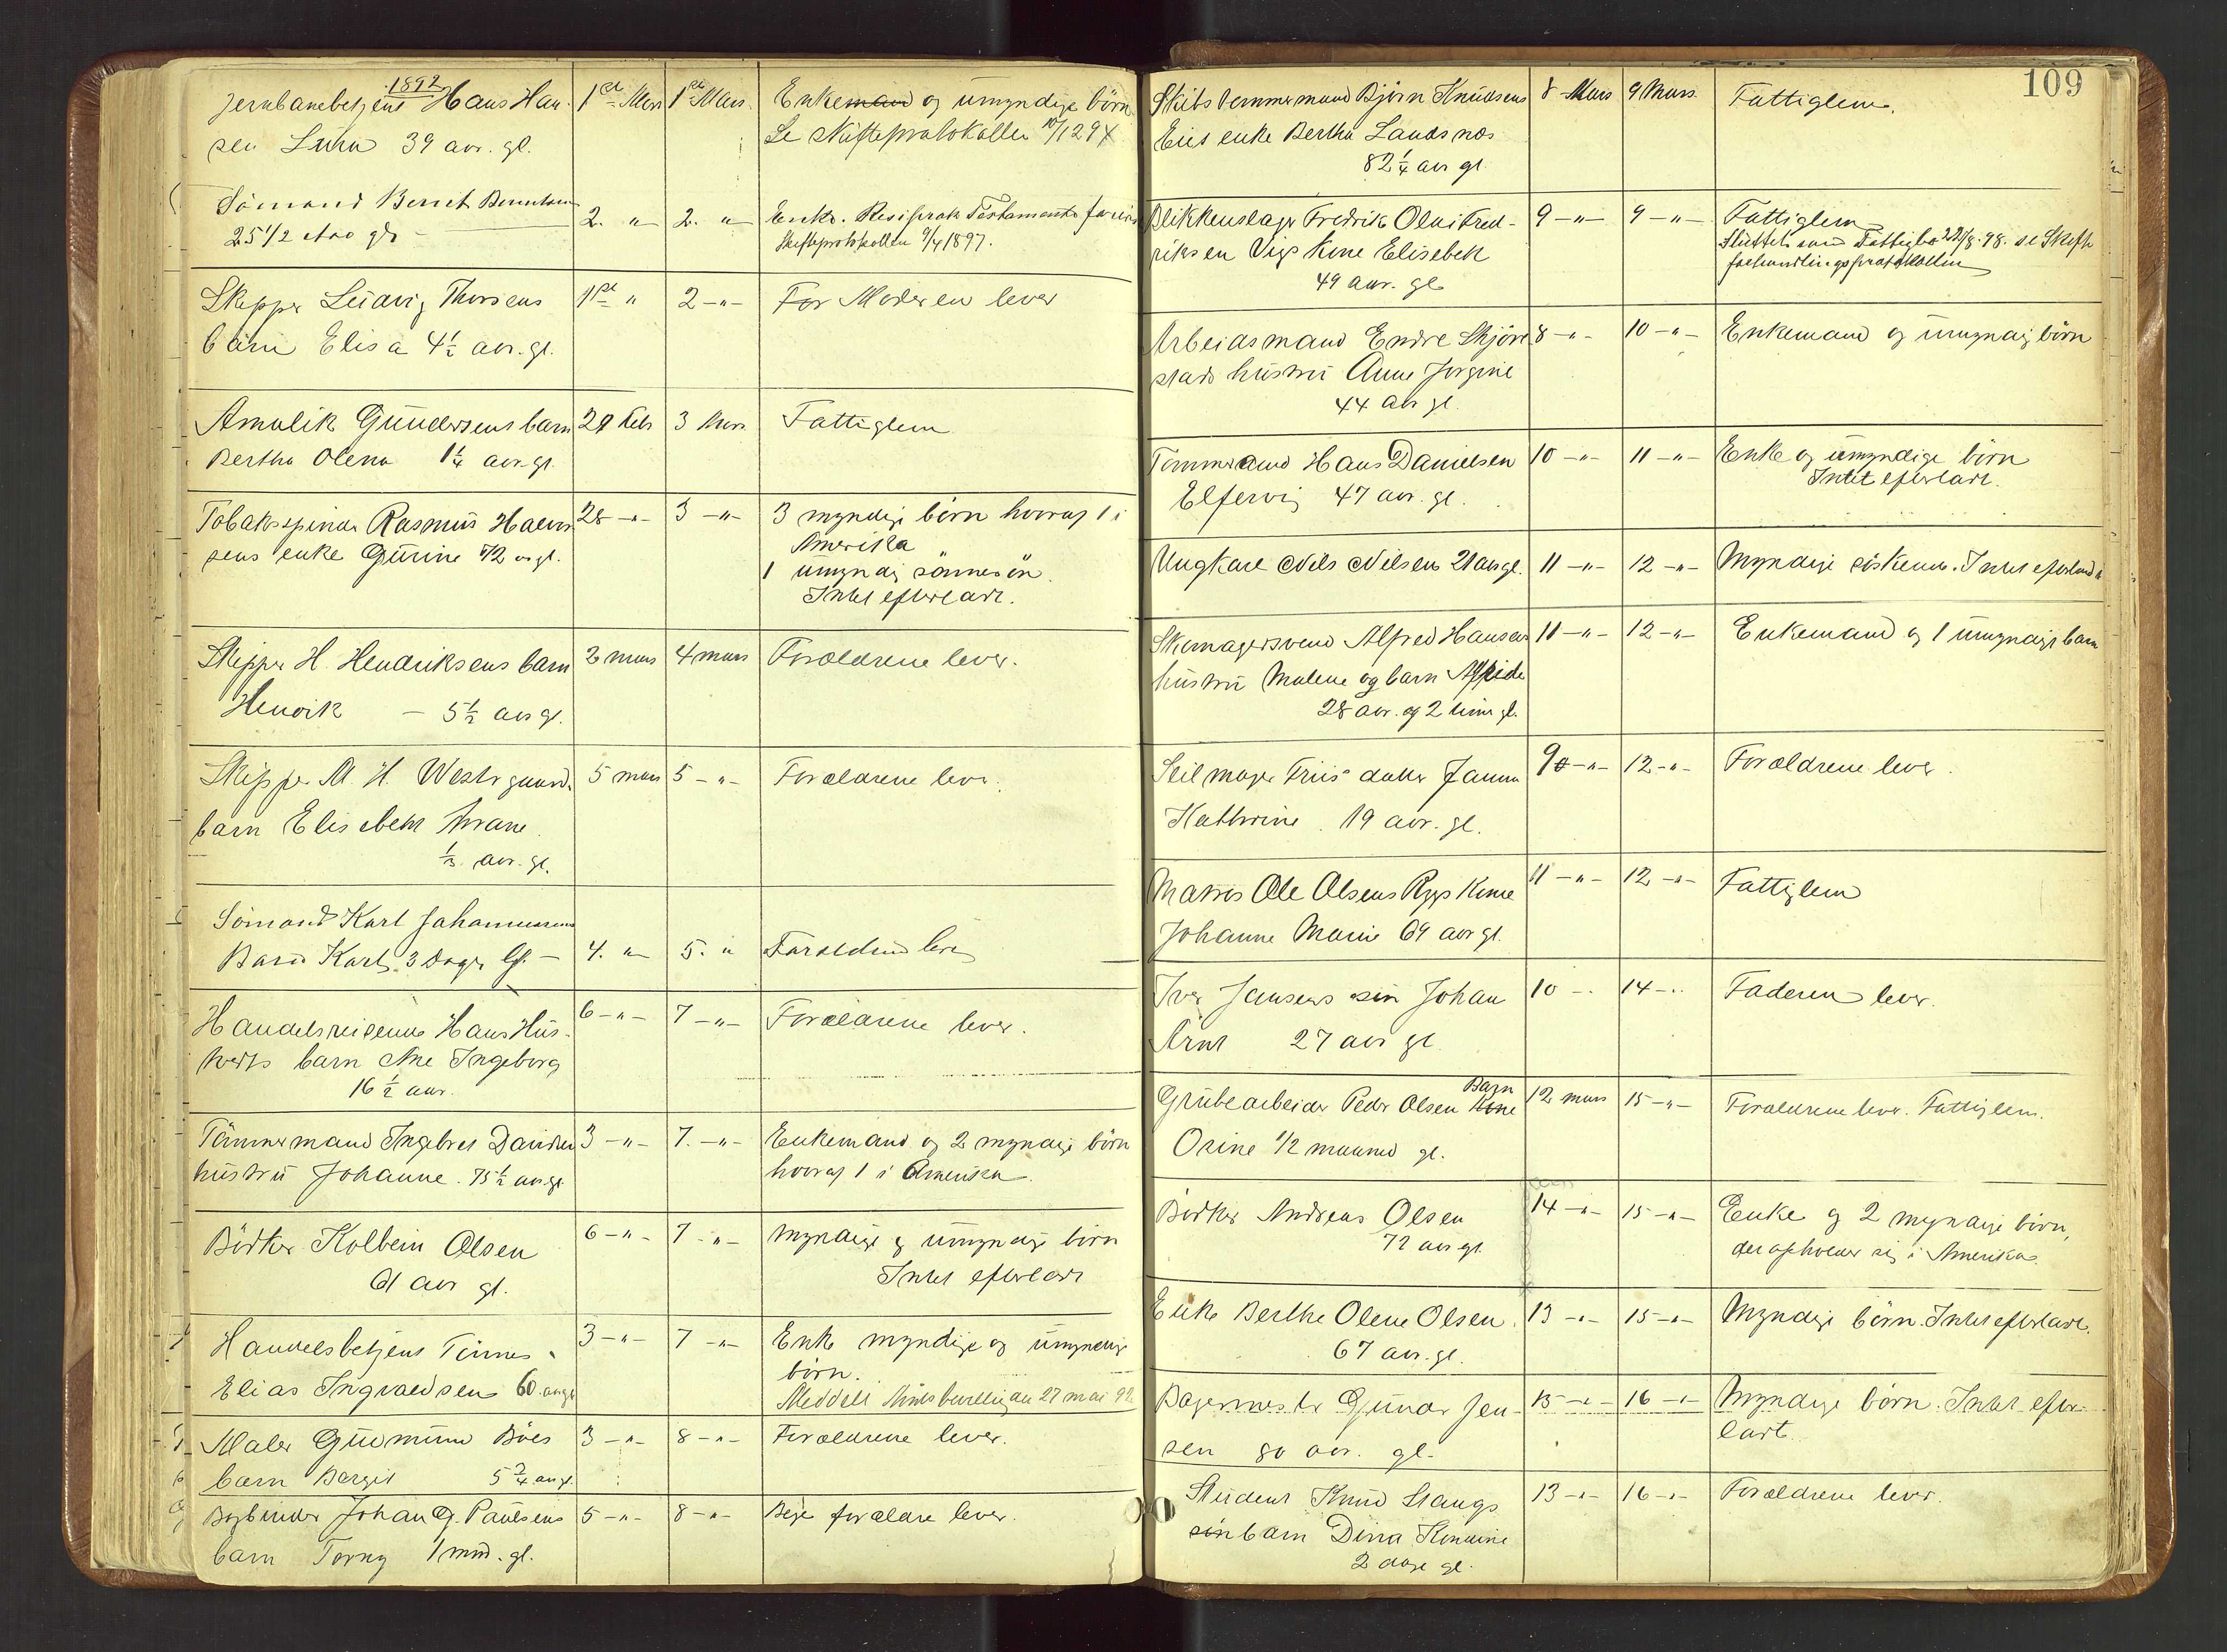 109
1892
Jernbanebetjent Hans Han- 1ste Mars 1ste Mars Enkemand og umyndige børn
sen Lura 39 aar. gl. Se Skifteprotokollen 10/12 94
Sömand Bernt Berntsen 2. " 2. " Enke. Resiprok Testamente
25 1/2 Aar gl. Skifteprotokollen 9/4 1897.
Skipper Ludvig Thorsens 1ste " 2 - " - For Moderen lever
barn Elisa 4 1/2 aar. gl.
Amalik Gundersens barn 29 Febr 3 Mars Fattiglem
Bertha Olena 1 1/4 aar. gl.
Tobaksspinder Rasmus Halvor- 28 - " - 3 - " - 3 myndige børn hvoraf 1 i
sens enke Gurine 72 aar gl. Amerika
1 umyndig sønnesøn.
Intet efterladt.
Skipper H. Hendriksens barn 2 mars 4 mars Forældrene lever.
Henrik - 5 1/2 aar gl.
Skipper M. H. Westergaards 5 mars 5 - " - Forældrene lever.
barn Elisabeth
1/3 aar. gl.
Sömand Karl Johannessens
Barn Karl, 3 Dager Gl. - 4. " 5. " Forældrene lever
Handelsreisende Hans Hus- 6 - " - 7 - " - Forældrene lever.
barn Ane Ingeborg
16 1/2 aar.
Tömmermand Ingebret Davidsen 3 - " - 7. - " - Enkemand og 2 myndige børn
hustru Johanne. 75 1/2 aar gl hvoraf 1 i Amerika.
Bödker Kolbein Olsen 6 - " - 7 - " - myndige og umyndige børn
61 aar gl. Intet efterladt
Handelsbetjent Tönnes 3 - " - 7 - " - Enke myndige og umyndige
Elias Ingvaldsen 60 aar gl børn.
Meddelt bevilling den 27 mai 92
Maler Gudmund Böes 3 - " - 8 - " - Forældrene lever.
barn Bergit 5 3/4 aar gl.
Bogbinder Johan G. Paulsens 5 - " - 8 - " - Begge forældre lever.
barn Torny 1 mnd. gl.
Skibstømmermand Björn Knudsens 8 Mars 9 Mars. Fattiglem.
Eies enke Bertha Landsnæs
82 1/4 aar gl.
Blikkenslager Fredrik Olai Fred- 9 - " - 9 - " - Fattiglem
riksen Vigs kone Elisebet Sluttet som Fattigbo 22/8. 98. se Skifte
49 aar. gl. forhandlingsprotokollen
Arbeidsmand Endre Skjöre- 8 - " - 10 - " - Enkemand og umyndig börn
stads hustru Anne Jorgine
44 aar gl.
Tömmermand Hans Danielsen 10 - " - 11 - " - Enke og umyndige börn
Elfervig 47 aar. gl. Intet efterladt.
Ungkarl Nils Nilsen 21 aar gl. 11 - " - 12 - " - Myndige söskende. Intet efterladt
Skomagersvend Alfred Hansens 11 - " - 12 - " - Enkemand og 1 umyndigt barn
hustru Malene og barn
28 aar. og 2 time gl.
Seilmager Friis' datter Janna 9 - " - 12 - " - Forældrene lever.
Kathrine. 19 aar. gl.
Matros Ole Olsens Rygs kone 11 - " - 12 - " - Fattiglem
Johanne Marie 69 aar gl.
Iver Jansens sön Johan 10 - " 14 - " Faderen lever.
Arnt 27 aar gl
Barn
Grubearbeider Peder Olsen Kone 12 mars 15 - " - Forældrene lever. Fattiglem.
Osine 1/2 maaned gl.
Bödker Andreas Olsen 14 - " - 15 - " - Enke og 2 myndige börn,
72 aar gl. der opholder sig i Amerika.
Enke Berthe Olene Olsen. 13 - " - 15 - " - Myndige börn. Intet efterladt.
67 aar. gl.
Bagermester Gunder Jen- 15 - " - 16 - " - Myndige börn. Intet efter-
sen 80 aar. gl. ladt.
Student Knud Stangs 13 - " - 16 - " - Forældrene lever.
sön barn Dina
2 dage gl.